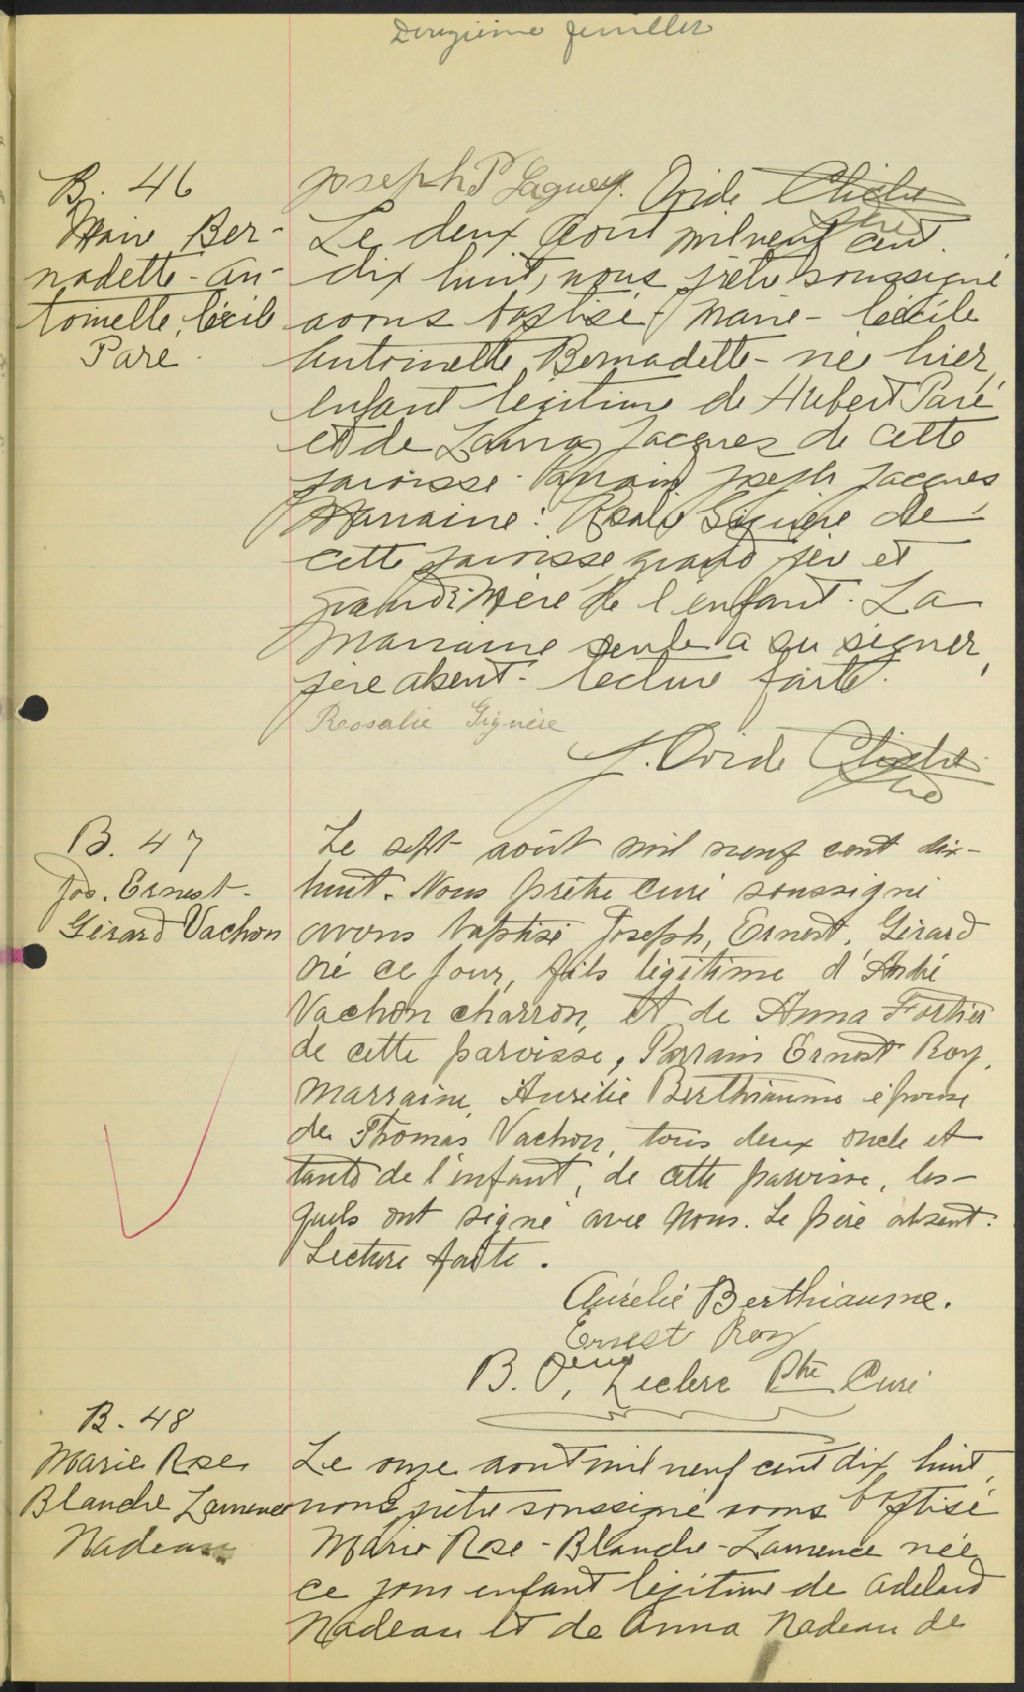 Douzième feuillet
Joseph P Gagney. Ovide Cliche
ptre
B. 46
Marie Ber-
nadette - An-
toinette, Cécile
Paré.
Le deux Aout mil neuf cent
dix huit, nous prêtre soussigné
avons baptisé Marie - Cécile
Antoinette Bernadette - née hier,
enfant légitime de Hubert Paré
et de Laura Jacques de cette
paroisse. Parrain Joseph Jacques
Marraine: Rosalie Giguère de
cette paroisse grand père et
grand'mère de l'enfant. La
marraine seule a su signer,
père absent - lecture faite.
Rosalie Gignère
J. Ovide Cliche
ptre
B. 47
Jos. Ernest -
Gérard Vachon
Le sept août mil neuf cent dix-
huit. Nous prêtre curé soussigné
avons baptisé Joseph, Ernest, Gérard
né ce jour, fils légitime d'André
Vachon charron, et de Anna Fortier
de cette paroisse, Parrain Ernest Roy,
Marraine, Aurélie Berthiaume épouse
de Thomas Vachon, tous deux oncle et
tante de l'enfant, de cette paroisse, les-
quels ont signé avec nous. Le père absent.
Lecture faite.
Aurélie Berthiaume.
Ernest Roy
B. Leclerc Ptre Curé
B. 48
Marie Rose
Blanche Laurence
Nadeau
Le onze aout mil neuf cent dix huit,
nous prêtre soussigné avons baptisé
Marie Rose - Blanche - Laurence née
ce jour enfant légitime de Adelard
Nadeau et de Anna Nadeau de